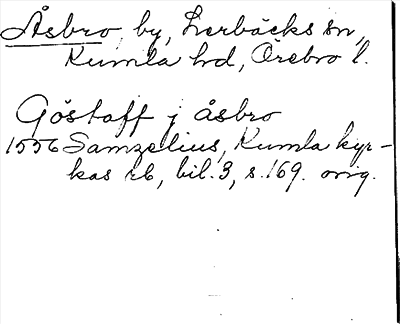 Åsbro, by, Lerbäcks sn,
Kumla hd, Örebro l.
Göstaff j åsbro
1556 Samzelius, Kumla kyr-
kas rb, bil. 3, s. 169. orig.